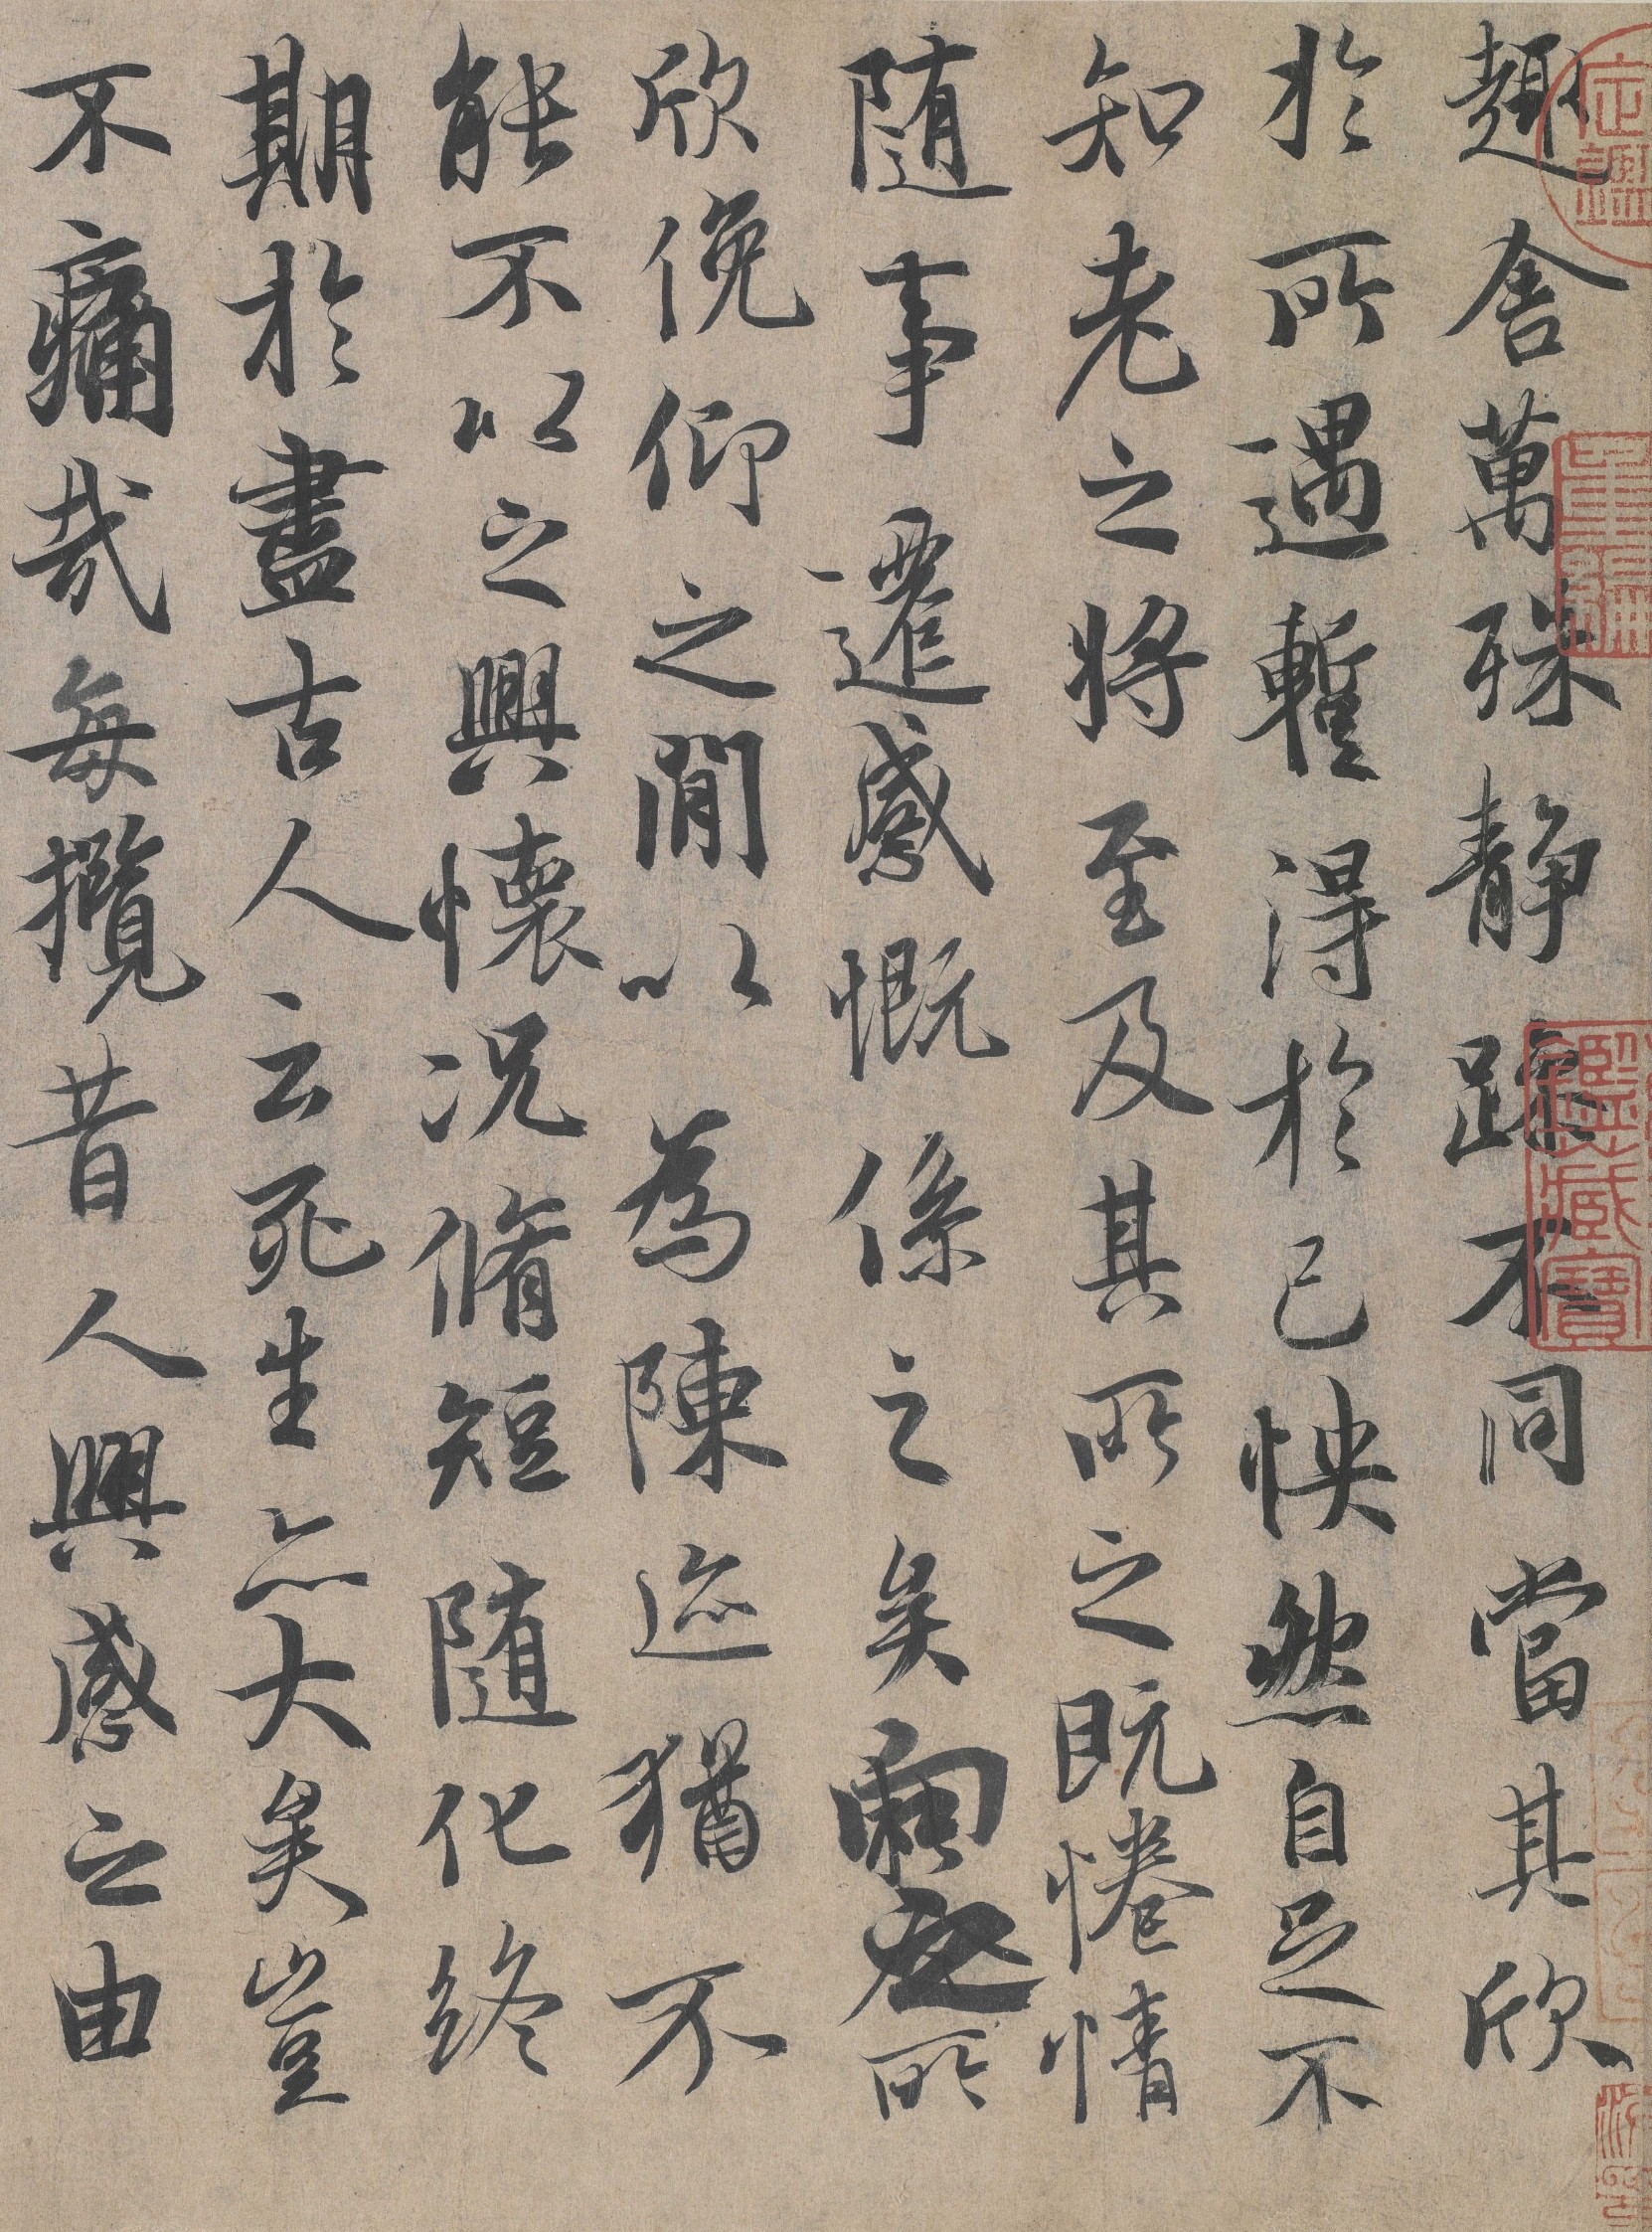 趣舍萬殊静躁不同當其欣
於所遇蹔得於己怏然自足不
知老之將至及其所之既惓情
随事遷感慨係之矣向之所
欣俛仰之閒以為陳迹猶不
能不以之興懷况脩短随化終
期於盡古人云死生亦大矣豈
不痛哉每攬昔人興感之由